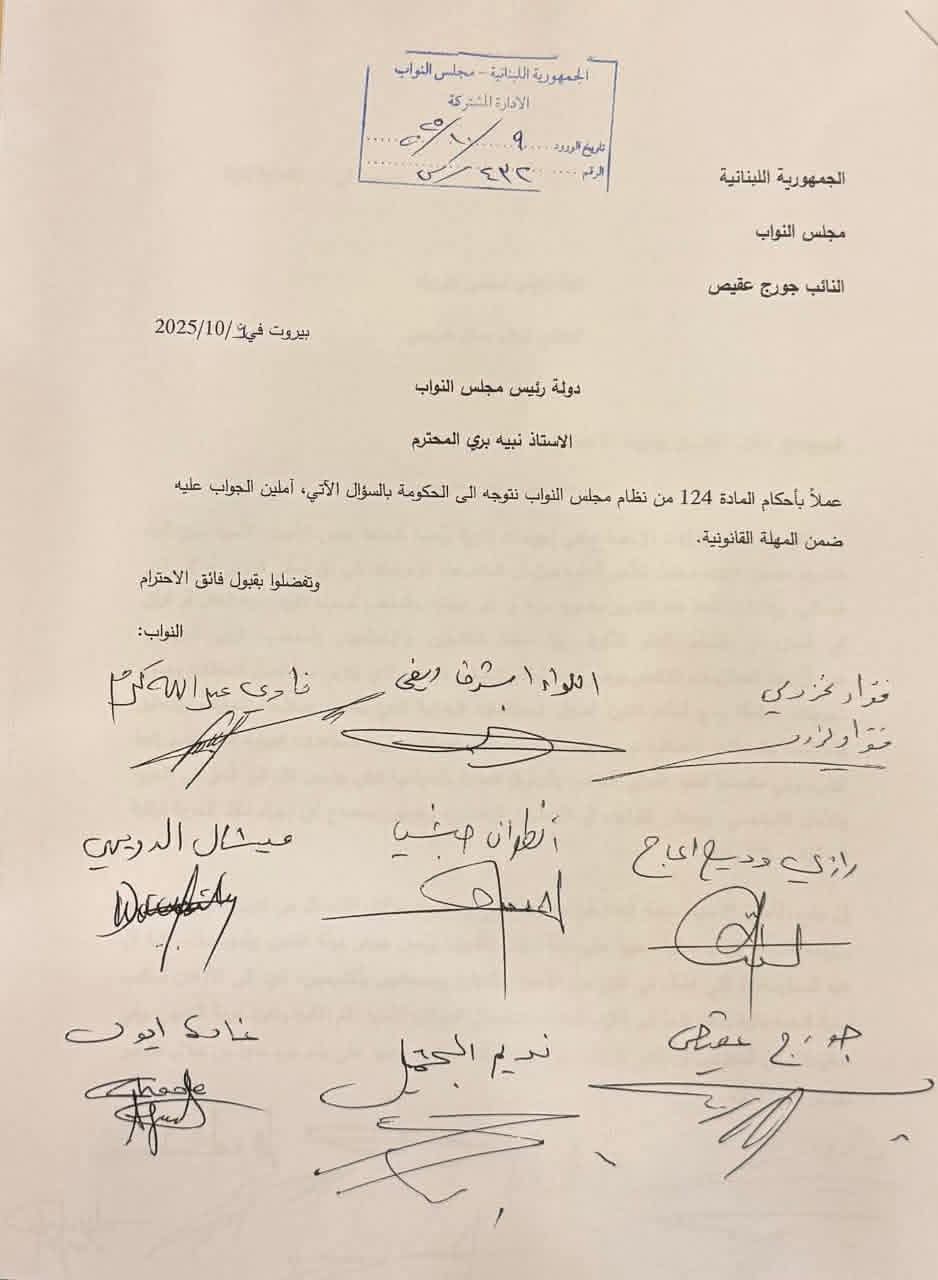 الجمهورية اللبنانية - مجلس النواب
الادارة المشتركة
تاريخ الورود ٩/١٠/٢٥
الرقم ٤٣٢/س
الجمهورية اللبنانية
مجلس النواب
النائب جورج عقيص
بيروت في 9/10/2025
دولة رئيس مجلس النواب
الاستاذ نبيه بري المحترم
عملاً بأحكام المادة 124 من نظام مجلس النواب نتوجه الى الحكومة بالسؤال الآتي، آملين الجواب عليه
ضمن المهلة القانونية.
وتفضلوا بقبول فائق الاحترام
النواب:
فؤاد مخزومي
اللواء اشرف ريفي
فادي عبدالله كرم
رازي وديع الحاج
أنطوان حبشي
ميشال الدويهي
جورج عقيص
نديم الجميّل
غادة ايوب
Ghada
Ayoub